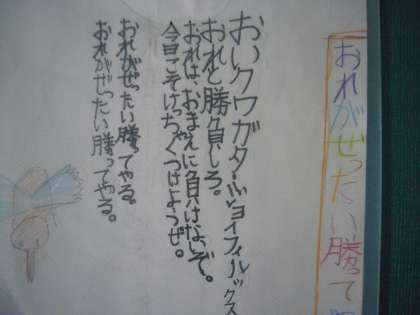 おれがぜったい勝って
おいクワガタ・ショイフィルックス
おれと勝負しろ。
おれは、おまえに負けないぞ。
今日こそけっちゃくつけようぜ。
おれがぜったい勝ってやる。
おれがぜったい勝ってやる。